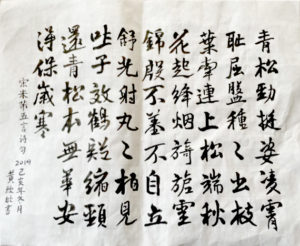 青松勁挺姿凌霄
耻屈盤種々出枝
葉牽連上松端秋
花起絳烟旖旎雲
錦殷不羞不自立
舒光射丸々柏見
吐子效鶴翳縮頸
還青松本無華安
得保歲寒
宋朱第五言诗句
2019
己亥年冬月
黄書